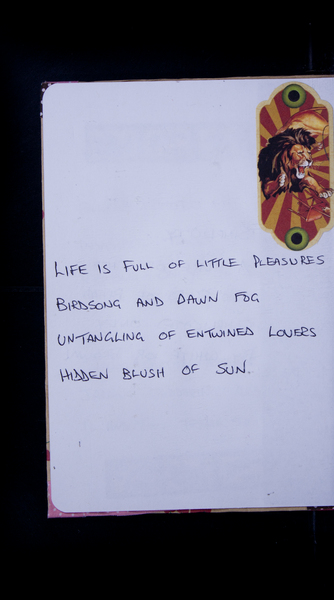 LIFE IS FULL OF LITTLE PLEASURES
BIRDSONG AND DAWN FOG
UNTANGLING OF ENTWINED LOVERS
HIDDEN BLUSH OF SUN.